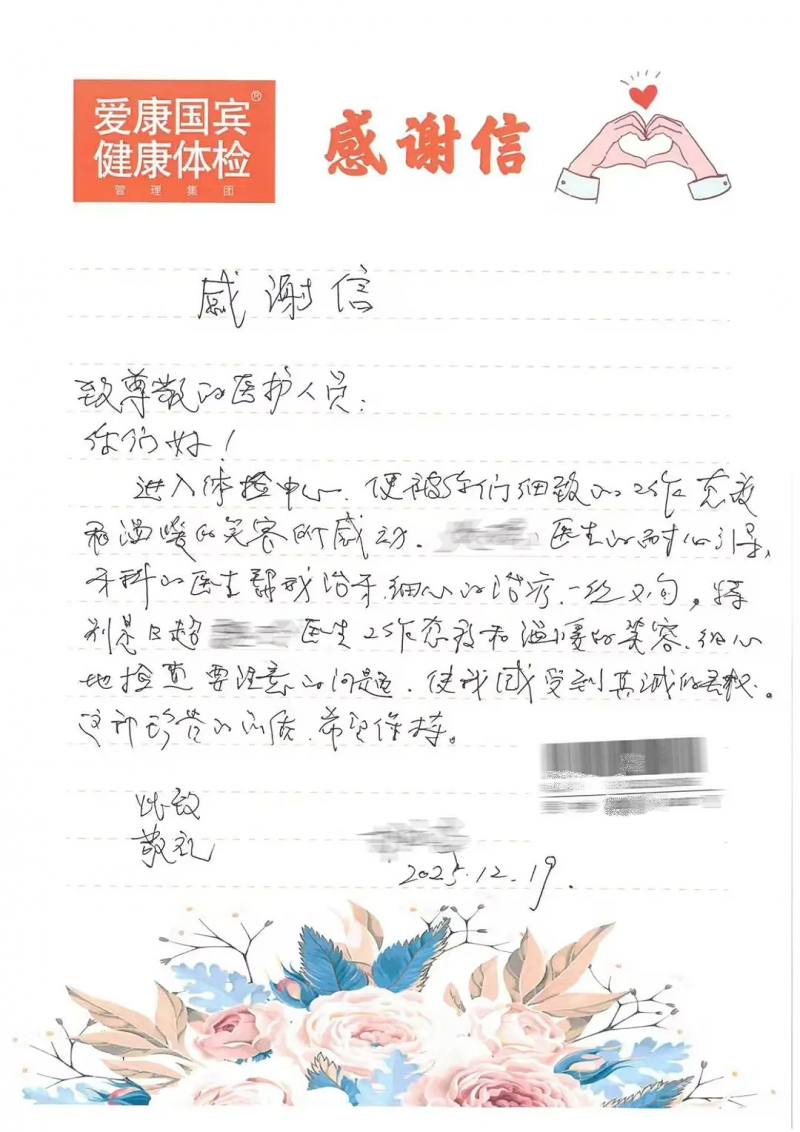 爱康国宾®
健康体检
管理集团
感谢信
感谢信
致尊敬的医护人员：
你们好！
进入体检中心、便被你们细致的工作态度
和温暖的笑容所感动. 医生的耐心引导，
牙科的医生帮我治牙.细心的治疗.一丝又句，特
别是B超 医生工作态度和温暖的笑容.细心
地检查要注意的问题.使我感受到真诚的
这种珍贵的 希望保持。
此致
敬礼
2025.12.19.